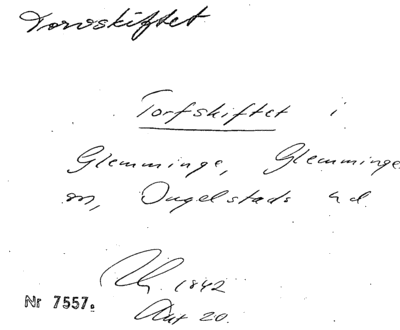 Torvskiftet
Torfskiftet i
Glemminge, Glemminge
sn, Ingelstads hd.
Rg. 1842
Akt 20.
Nr 7557.